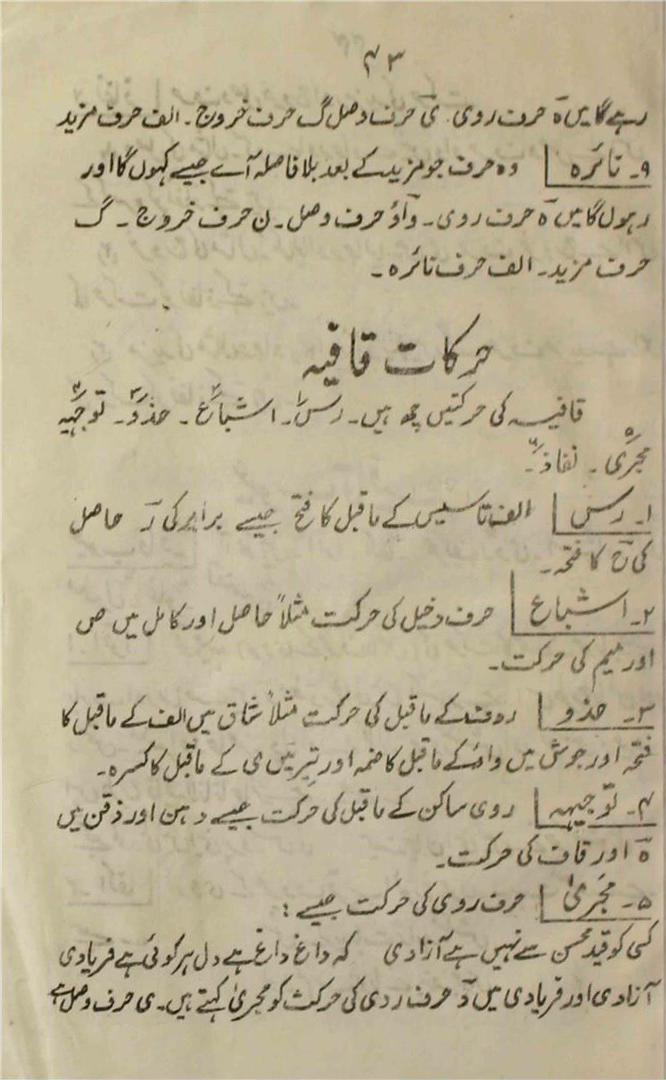 ۴۳
رہے گا میں ہ حرف روی۔ ی حرف وصل گ حرف خروج۔ الف حرف مزید
۹۔ نائرہ وہ حرف جو مزید کے بعد بلا فاصلہ آے جیسے کہوں گا اور
رہوں گا میں ہ حرف روی۔ واؤ حرف وصل۔ ن حرف خروج۔ گ
حرف مزید۔ الف حرف نائرہ۔
حرکات قافیہ
قافیہ کی حرکتیں چھ ہیں۔ رس۱۔ اشباع۲۔ حذو۳۔ توجیہ۴
مجریٰ۵۔ نفاذ۶۔
۱۔ رس الف تاسیس کے ماقبل کا فتح جیسے برابر کی ر حاصل
کی ح کا فتحہ۔
۲۔ اشباع حرف دخیل کی حرکت مثلاً حاصل اور کامل میں ص
اور میم کی حرکت۔
۳۔ حذو ردف کے ماقبل کی حرکت مثلاً شاق میں الف کے ماقبل کا
فتحہ اور جوش میں واؤ کے ماقبل کا ضمہ اور تیر میں ی کے ماقبل کا کسرہ۔
۴۔ توجیہہ روی ساکن کے ماقبل کی حرکت جیسے دہن اور ذقن میں
ہ اور قاف کی حرکت۔
۵۔ مجریٰ حرف روی کی حرکت جیسے :
کسی کو قید محسن سے نہیں ہے آزادی کہ داغ داغ ہے دل ہر کوئی ہے فریادی
آزادی اور فریادی میں د حرف ردی کی حرکت کو مجریٰ کہتے ہیں۔ ی حرف وصل ہے